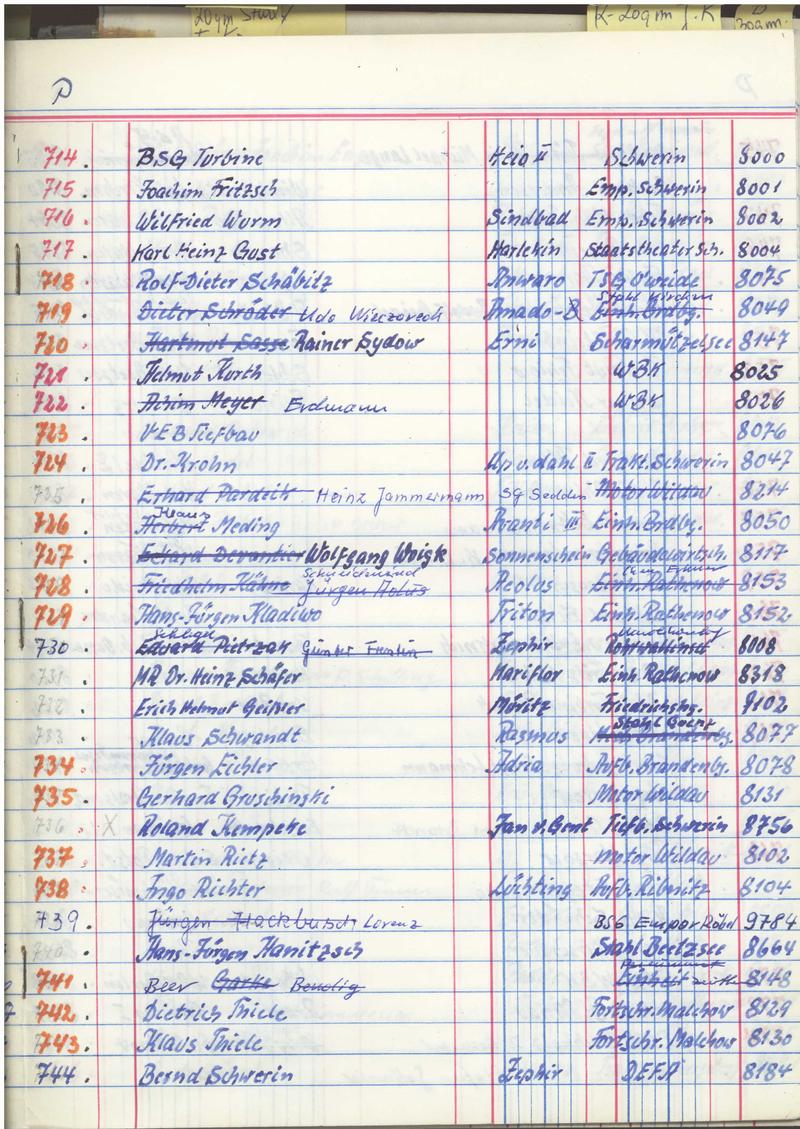 20qm
K-20qm J.K
30qm.
P
714. BSG Turbine Heio II Schwerin 8000
715. Joachim Fritzsch Emp. Schwerin 8001
716. Wilfried Wurm Sindbad Emp. Schwerin 8002
717. Karl Heinz Gust Harlekin Staatstheater Sch. 8004
718. Rolf-Dieter Schäbitz Anwaro TSG O'weide 8075
Stahl Kirchm
719. Dieter Schröder Udo Wieczoreck Amado-B Einh. Brdbg. 8049
720. Hartmut Sasse Rainer Sydow Erni Scharmützelsee 8147
721. Helmut Kurth WBK 8025
722. Achim Meyer Erdmann WBK 8026
723. VEB Tiefbau 8076
724. Dr. Krohn Up v. dahl II Trakt. Schwerin 8047
725. Erhard Pardeik Heinz Jammermann SG Seddin Motor Wildau 8214
Klaus
726. Herbert Meding Avanti III Einh. Brdbg. 8050
727. Eckard Devantier Wolfgang Woigk Sonnenschein Gebäudewirtsch. 8117
728. Friedhelm Kühne Jürgen Aeolus Einh. Rathenow 8153
729. Hans-Jürgen Kladiwo Triton Einh. Rathenow 8152
730. Eduard Pietrzak Günter Zephir 8008
731. MR Dr. Heinz Schäfer Mariflor Einh Rathenow 8318
732. Erich Helmut Geißler Müritz Friedrichshg. 9102
Stahl
733. Klaus Schwandt Rasmus 8077
734. Jürgen Eichler Adria Aufb. Brandenbg. 8078
735. Gerhard Gruschinski Motor Wildau 8131
736. X Roland Kempcke Jan v. Gent Tiefb. Schwerin 8756
737. Martin Rietz Motor Wildau 8102
738. Ingo Richter Lüchting Aufb. Ribnitz 8104
739. Jürgen Hackbusch Lorenz BSG Empor Röbel 9784
740. Hans-Jürgen Hanitzsch Stahl Beetzsee 8664
741. Beer Garke Bendig Einheit 8148
742. Dietrich Thiele Fortschr. Malchow 8129
743. Klaus Thiele Fortschr. Malchow 8130
744. Bernd Schwerin Zephir DEFA 8184